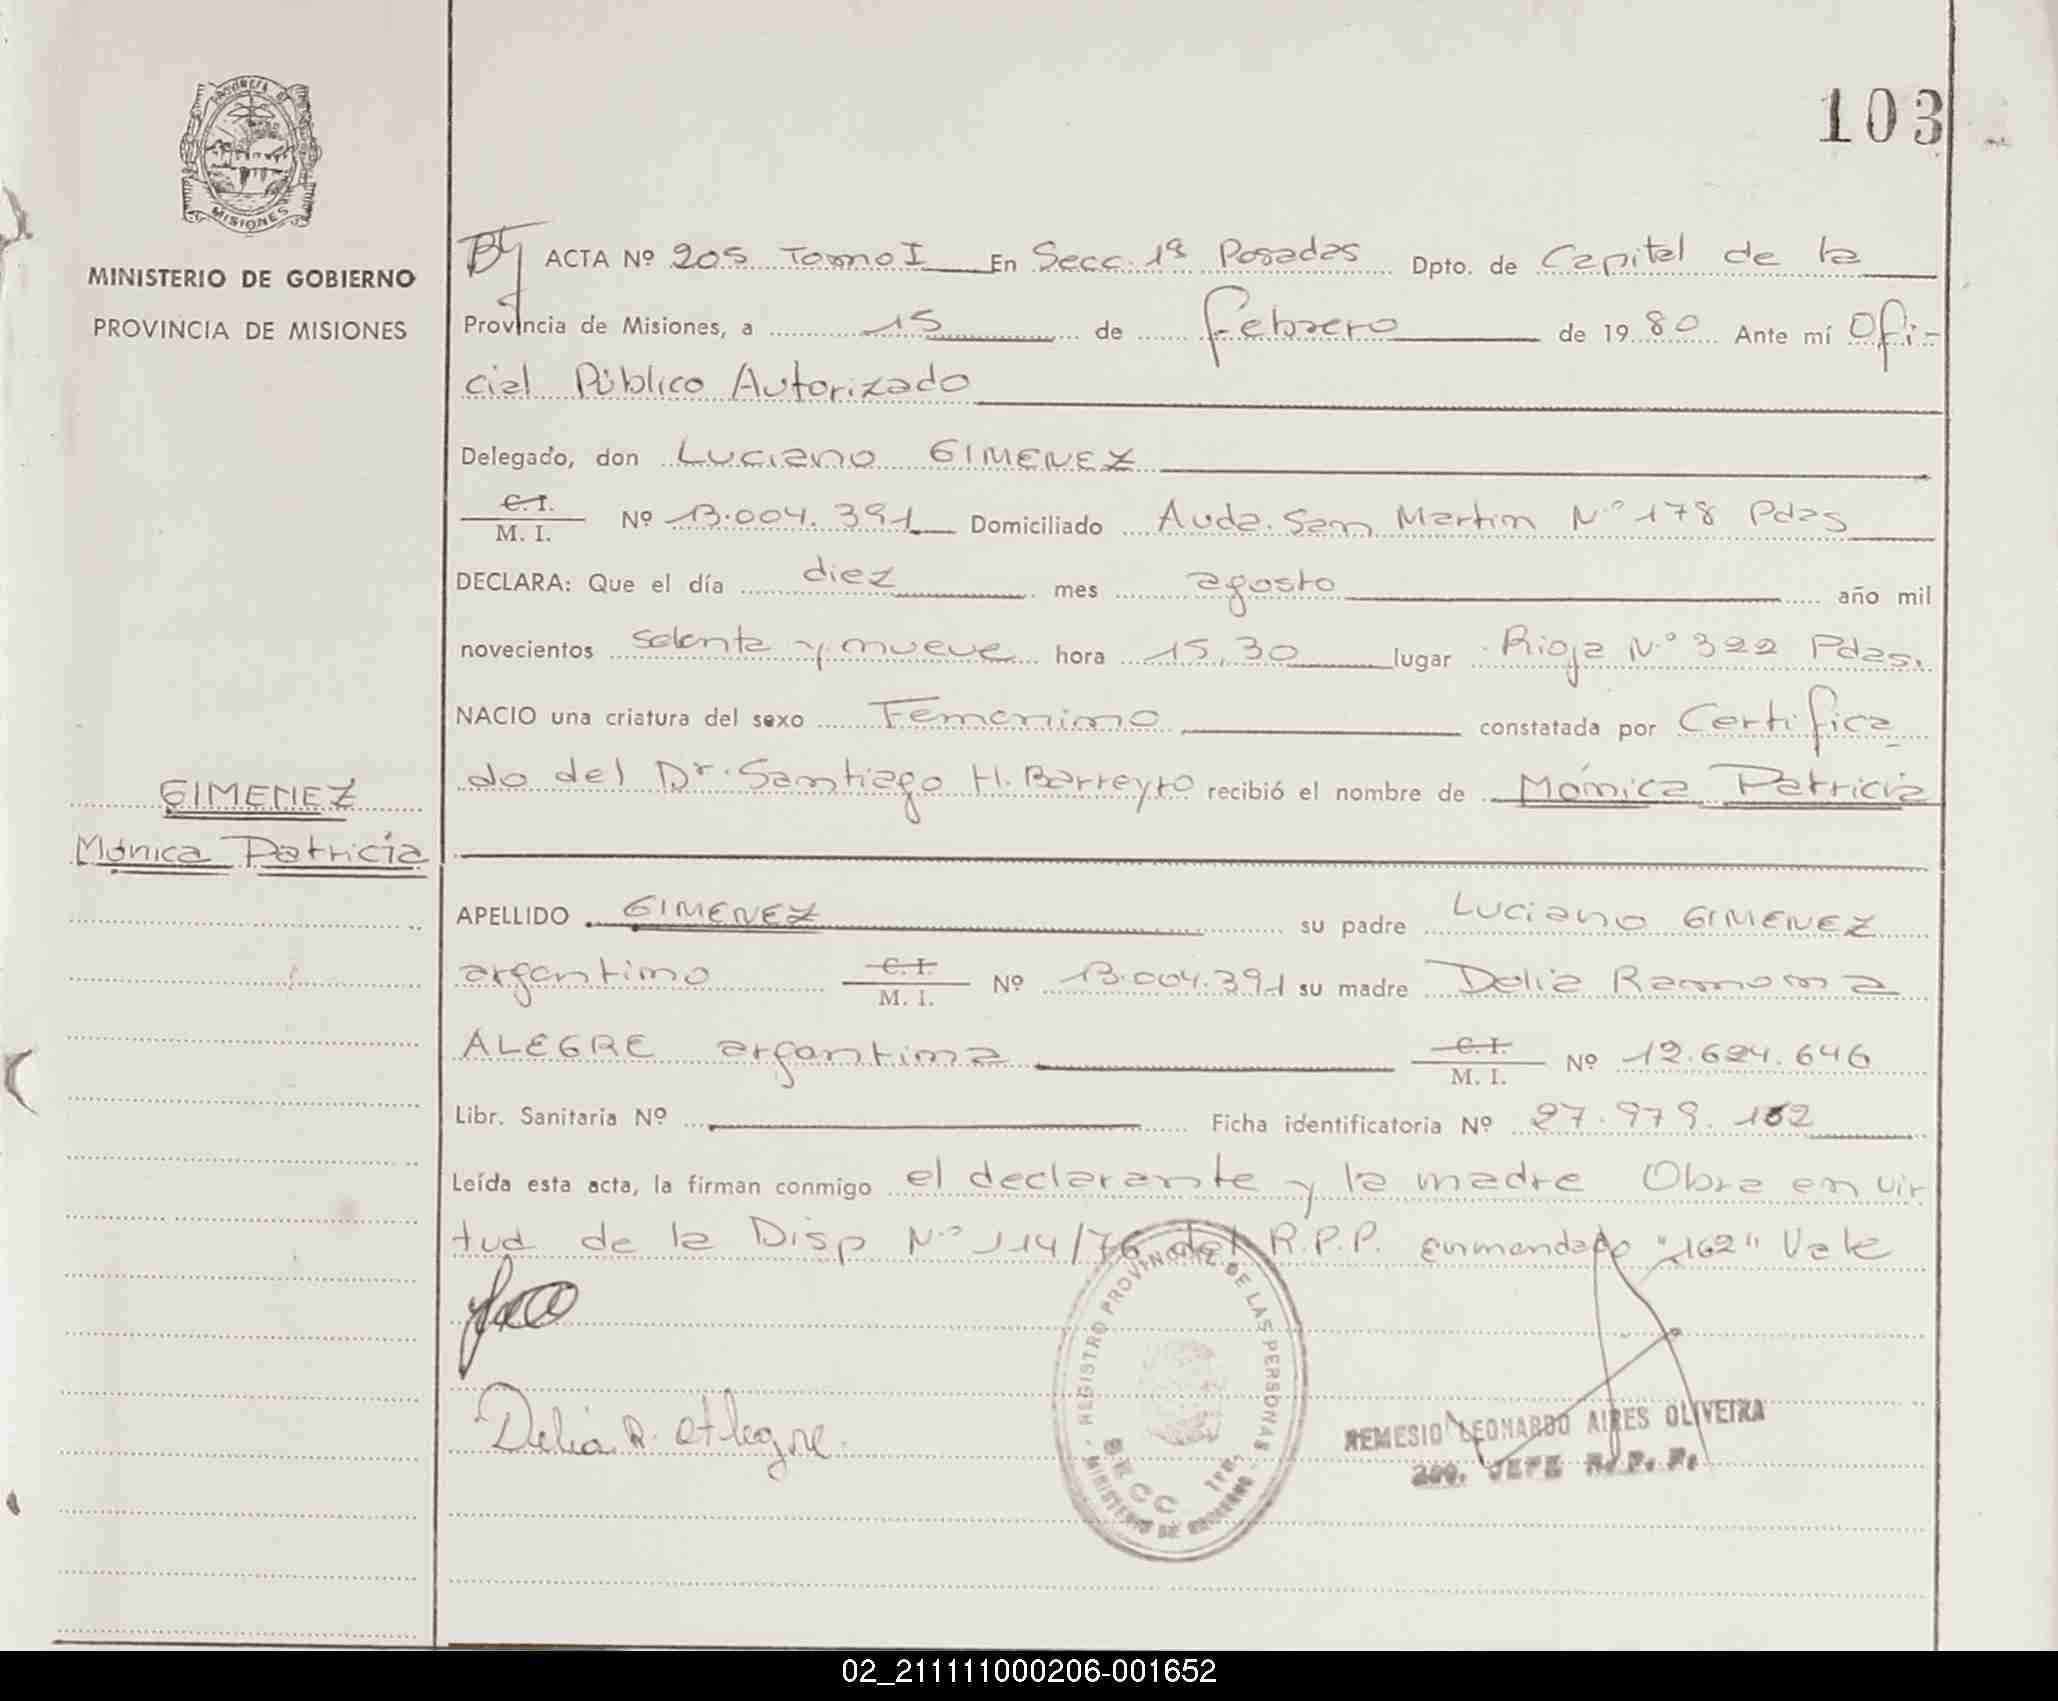 103
PROVINCIA DE
MISIONES
MINISTERIO DE GOBIERNO
PROVINCIA DE MISIONES
ACTA Nº 205 Tomo I En Secc. 1ª Posadas Dpto. de Capital de la
Provincia de Misiones, a 15 de febrero de 1980 Ante mí Ofi-
cial Público Autorizado
Delegado, don Luciano GIMENEZ
C. I.
M. I. Nº 13.004.391 Domiciliado Avda. San Martin Nº 178 Pdas
DECLARA: Que el día diez mes agosto año mil
novecientos setenta y nueve hora 15,30 lugar Rioja Nº 322 Pdas.
NACIO una criatura del sexo Femenino constatada por Certifica
do del Dr. Santiago H. Barreyro recibió el nombre de Mónica Patricia
GIMENEZ
Mónica Patricia
APELLIDO GIMENEZ su padre Luciano GIMENEZ
argentino C. I. M. I. Nº 13.004.391 su madre Delia Ramona
ALEGRE argentina C. I. M. I. Nº 12.624.646
Libr. Sanitaria Nº Ficha identificatoria Nº 27.979.162
Leída esta acta, la firman conmigo el declarante y la madre Obra en vir
tud de la Disp Nº 114/76 del R.P.P. enmendado "162" Vale
Delia R. Alegre.
REGISTRO PROVINCIAL DE LAS PERSONAS
SECC 1RA.
MINISTERIO DE GOBIERNO
REMESIO LEONARDO AIRES OLIVEIRA
2do. JEFE R. P. P.
02_211111000206-001652